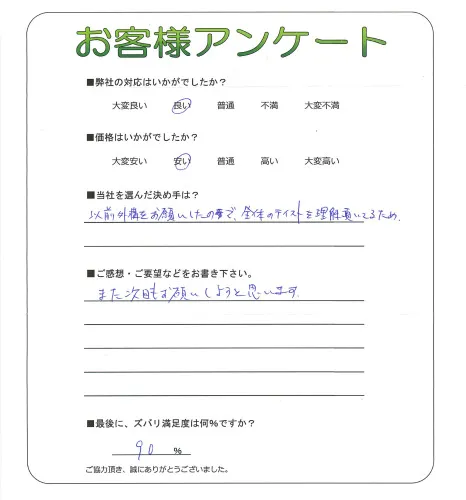 お客様アンケート
■弊社の対応はいかがでしたか？
大変良い 良い 普通 不満 大変不満
■価格はいかがでしたか？
大変安い 安い 普通 高い 大変高い
■当社を選んだ決め手は？
以前外構をお願いしたの事で、全体のテイストを理解頂いてるため.
■ご感想・ご要望などをお書き下さい。
また次回もお願いしようと思います.
■最後に、ズバリ満足度は何%ですか？
90 %
ご協力頂き、誠にありがとうございました。